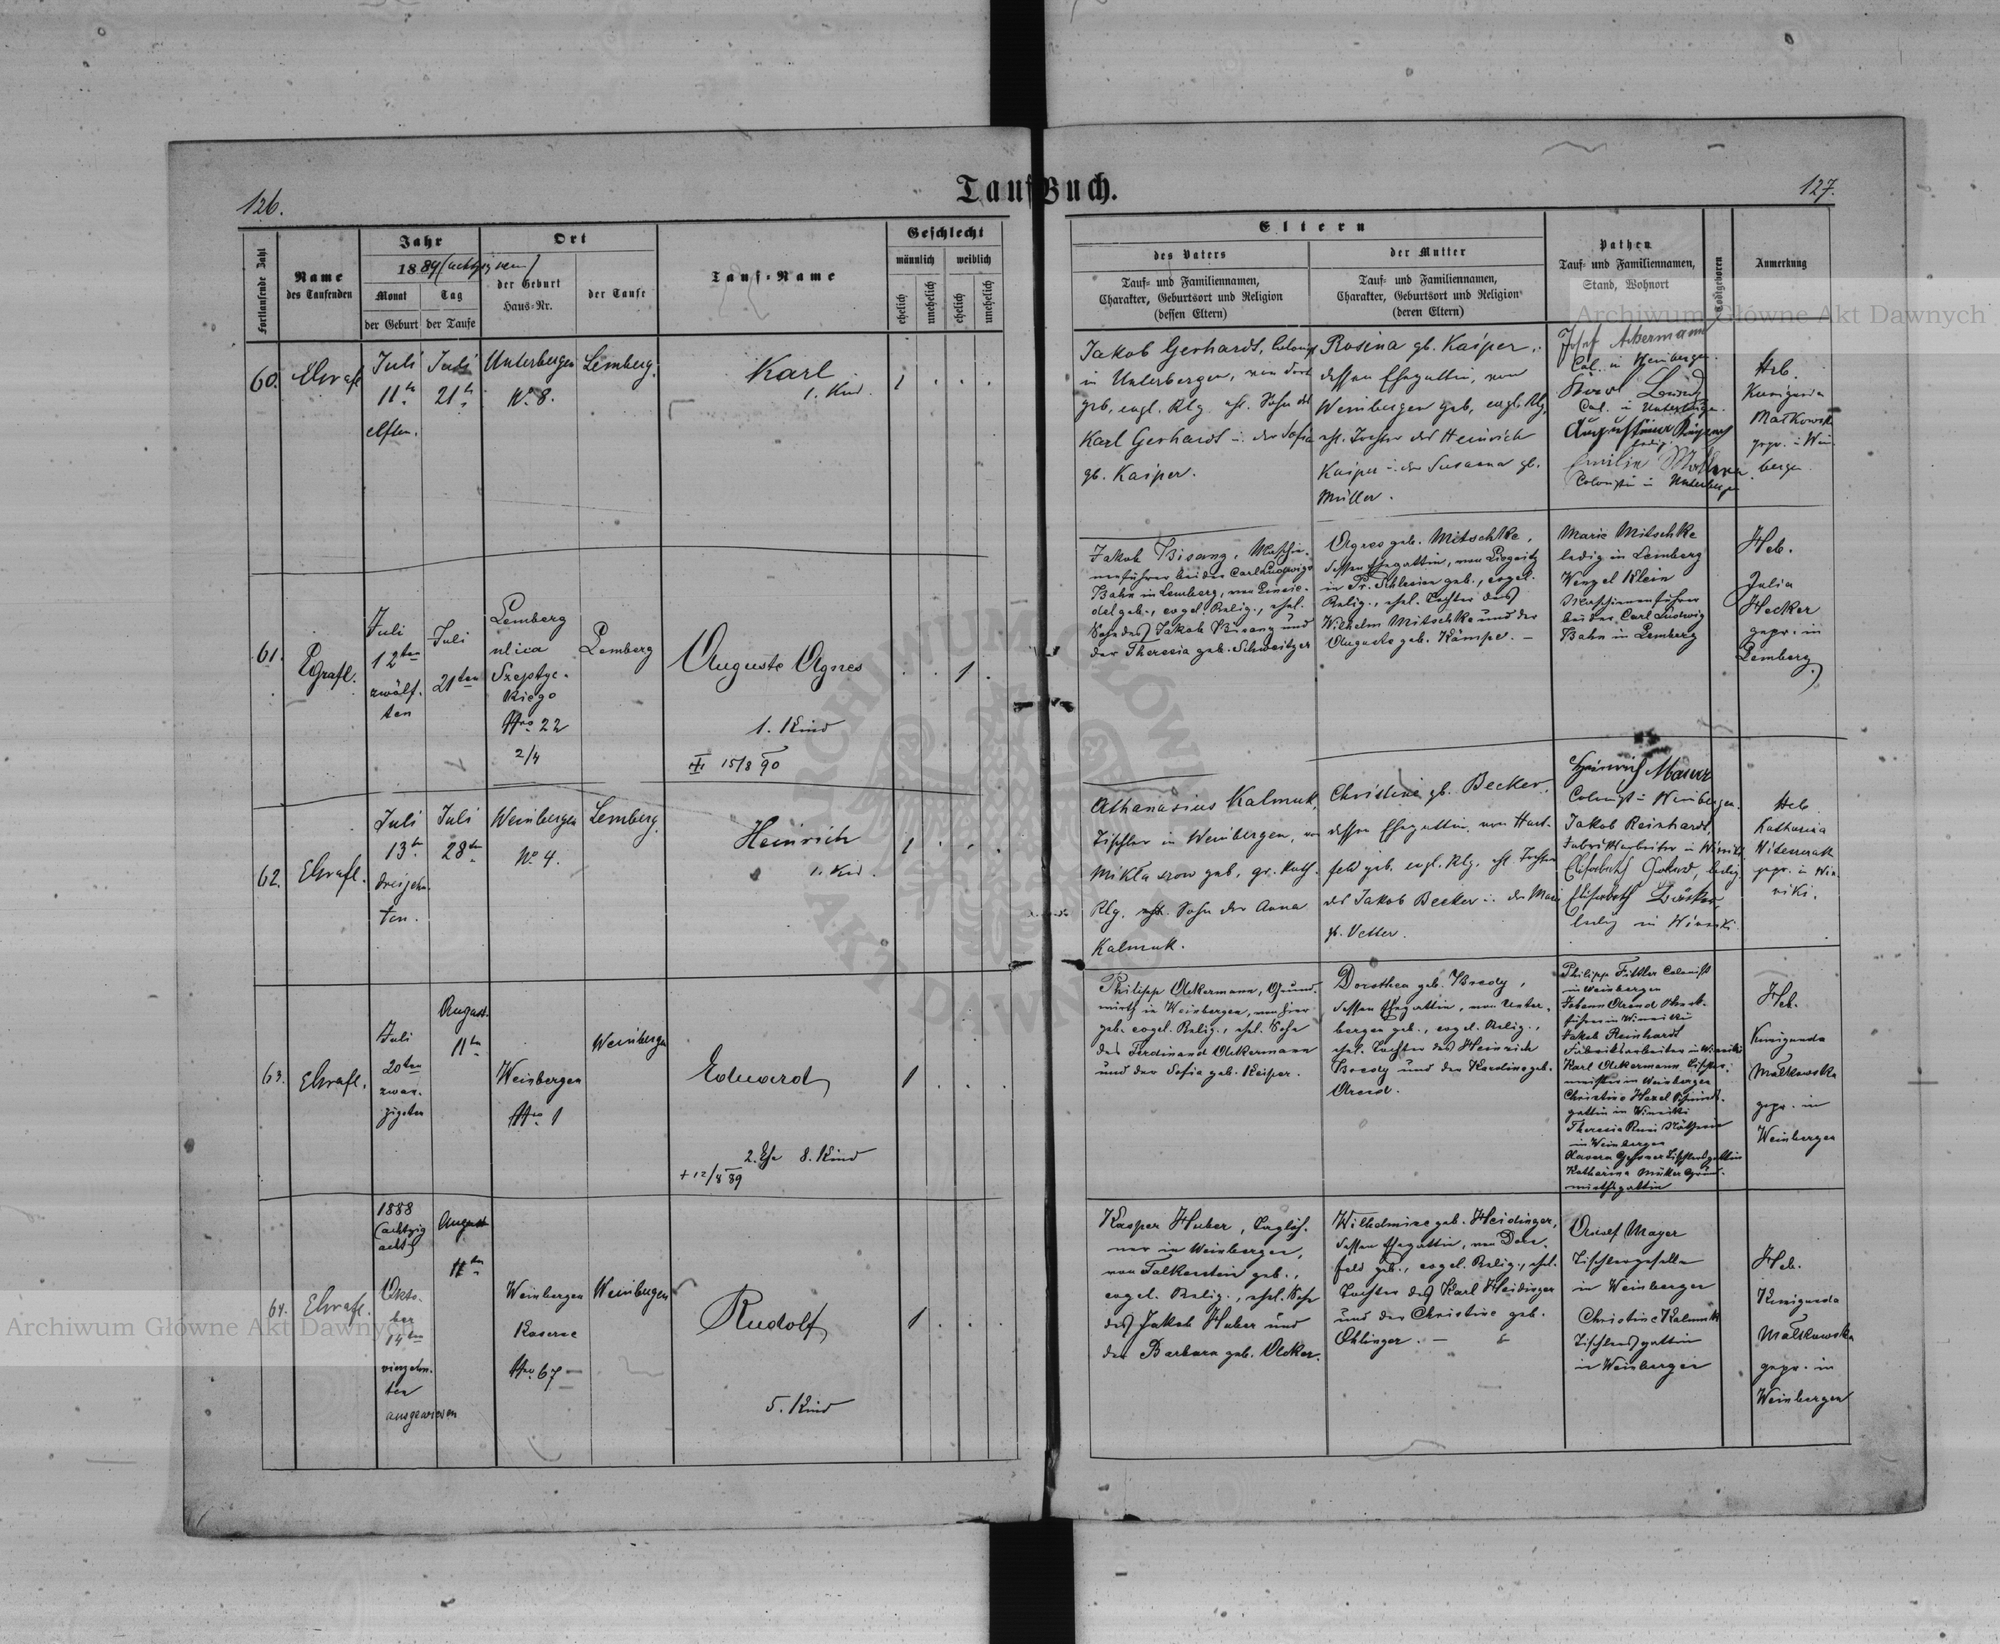 126.
Tauf Buch.
127.
Fortlaufende Zahl
Name
des Taufenden
Jahr
1889 (achtzig neun)
Monat
der Geburt
Tag
der Taufe
Ort
der Geburt
Haus-Nr.
der Taufe
Tauf-Name
Geschlecht
männlich
weiblich
ehelich
unehelich
ehelich
unehelich
Eltern
des Vaters
Tauf- und Familiennamen,
Charakter, Geburtsort und Religion
(dessen Eltern)
der Mutter
Tauf- und Familiennamen,
Charakter, Geburtsort und Religion
(deren Eltern)
Pathen
Tauf- und Familiennamen,
Stand, Wohnort
Todtgeboren
Anmerkung
60.
Juli
11ten
elften.
Juli
21ten
Unterbergen
No 8.
Lemberg.
Karl
1. Kind.
1 . . .
Jakob Gerhardt, Colonist
in Unterbergen, von dort
geb, evgl. Rlg. ehl. Sohn des
Karl Gerhardt u. der Sofia
gb. Kaiper.
Rosina gb. Kaiper,
dessen Ehegattin, von
Weinbergen geb, evgl. Rlg.
ehl. Tochter des Heinrich
Kaiper u. der Susanna gb.
Müller.
Josef Ackermann
Col. in Weinbergen.
Col. in Unterbergen.
ledig
Emilie
Colonistin in Unterbergen
Heb.
Kunigunda
Malkowska
gepr. in Wein-
bergen.
61.
Juli
12ten
zwölf-
ten
Juli
21ten
Lemberg
ulica
Szeptyc-
kiego
Nro 22
2/4
Lemberg
Auguste Agnes
1. Kind
15/8 90
. . 1 .
Jakob Bisanz, Maschi-
nenführer bei der Carl Ludwigs
Bahn in Lemberg, von Einsie-
del geb., evgel. Relig., ehel.
Sohn des Jakob Bisanz und
der Theresia geb. Schweitzer
Agnes geb. Mitschke,
dessen Ehegattin, von Liegnitz
in Pr. Schlesien geb., evgel.
Relig., ehel. Tochter des
Wilhelm Mitschke und der
Auguste geb. Kämper. –
Marie Mitschke
ledig in Lemberg
Wenzel Klein
Maschinenführer
bei der Carl Ludwig
Bahn in Lemberg
Heb.
Julia
Hecker
gepr. in
Lemberg.
62.
Juli
13ten
dreizehn-
ten.
Juli
28ten
Weinbergen
No 4.
Lemberg.
Heinrich
1. Kind.
1 . . .
Athanasius Kalmuk,
Tischler in Weinbergen, von
Miklaszow geb, gr. kath.
Rlg. Sohn der Anna
Kalmuk.
Christine gb. Becker,
dessen Ehegattin, von Hart-
feld geb. evgl. Rlg. ehl. Tochter
des Jakob Becker u. der Marie
gb. Vetter.
Heinrich Maurer
Colonist in Weinbergen.
Jakob Reinhardt,
Fabriksarbeiter in Winniki
Elisabeth
ledig
Elisabeth
ledig in Winniki.
Heb
Katharina
gepr. in Win-
niki.
63.
Juli
20ten
zwan-
zigsten
August
11ten
Weinbergen
Nro 1
Weinbergen
Eduard
2. Ehe 8. Kind
+ 12/8 89
1 . . .
Philipp Ackermann, Grund-
wirth in Weinbergen, von hier
geb. evgel. Relig., ehel. Sohn
des Ferdinand Ackermann
und der Sofia geb. Keiper.
Dorothea geb. Bredy,
dessen Ehegattin, von Unter-
bergen geb., evgel. Relig.,
ehel. Tochter des Heinrich
Bredy und der Karoline geb.
Arend.
Philipp Fittler Colonist
in Weinbergen
Johann Arend
führer in Winniki
Jakob Reinhardt
Fabriksarbeiter in Winniki
Karl Ackermann Tischler-
meister in Weinbergen
Christine Hexel Schmied-
gattin in Winniki
Theresia
in Weinbergen
Tischlersgattin
Katharina Müller Grund-
wirthsgattin
Heb.
Kunigunda
Malkowska
gepr. in
Weinbergen
64.
1888
(achtzig
acht)
Okto-
ber
14ten
vierzehn-
ten
ausgewiesen
August
11ten
Weinbergen
Kaserne
Nro 67 –
Weinbergen
Rudolf
5. Kind
1 . . .
Kasper Huber, Taglöh-
ner in Weinbergen,
von Falkenstein geb.,
evgel. Relig., ehel. Sohn
des Jakob Huber und
der Barbara geb. Acker.
Wilhelmine geb. Heidinger,
dessen Ehegattin, von Dorn-
feld geb., evgel. Relig., ehel.
Tochter des Karl Heidinger
und der Christine geb.
Ohlinger. –
Adolf Mayer
Tischlergeselle
in Weinbergen
Christine Kalmuk
Tischlersgattin
in Weinbergen
Heb.
Kunigunda
Malkowska
gepr. in
Weinbergen
Archiwum Główne Akt Dawnych
Archiwum Główne Akt Dawnych
ARCHIWUM GŁÓWNE
AKT DAWNYCH